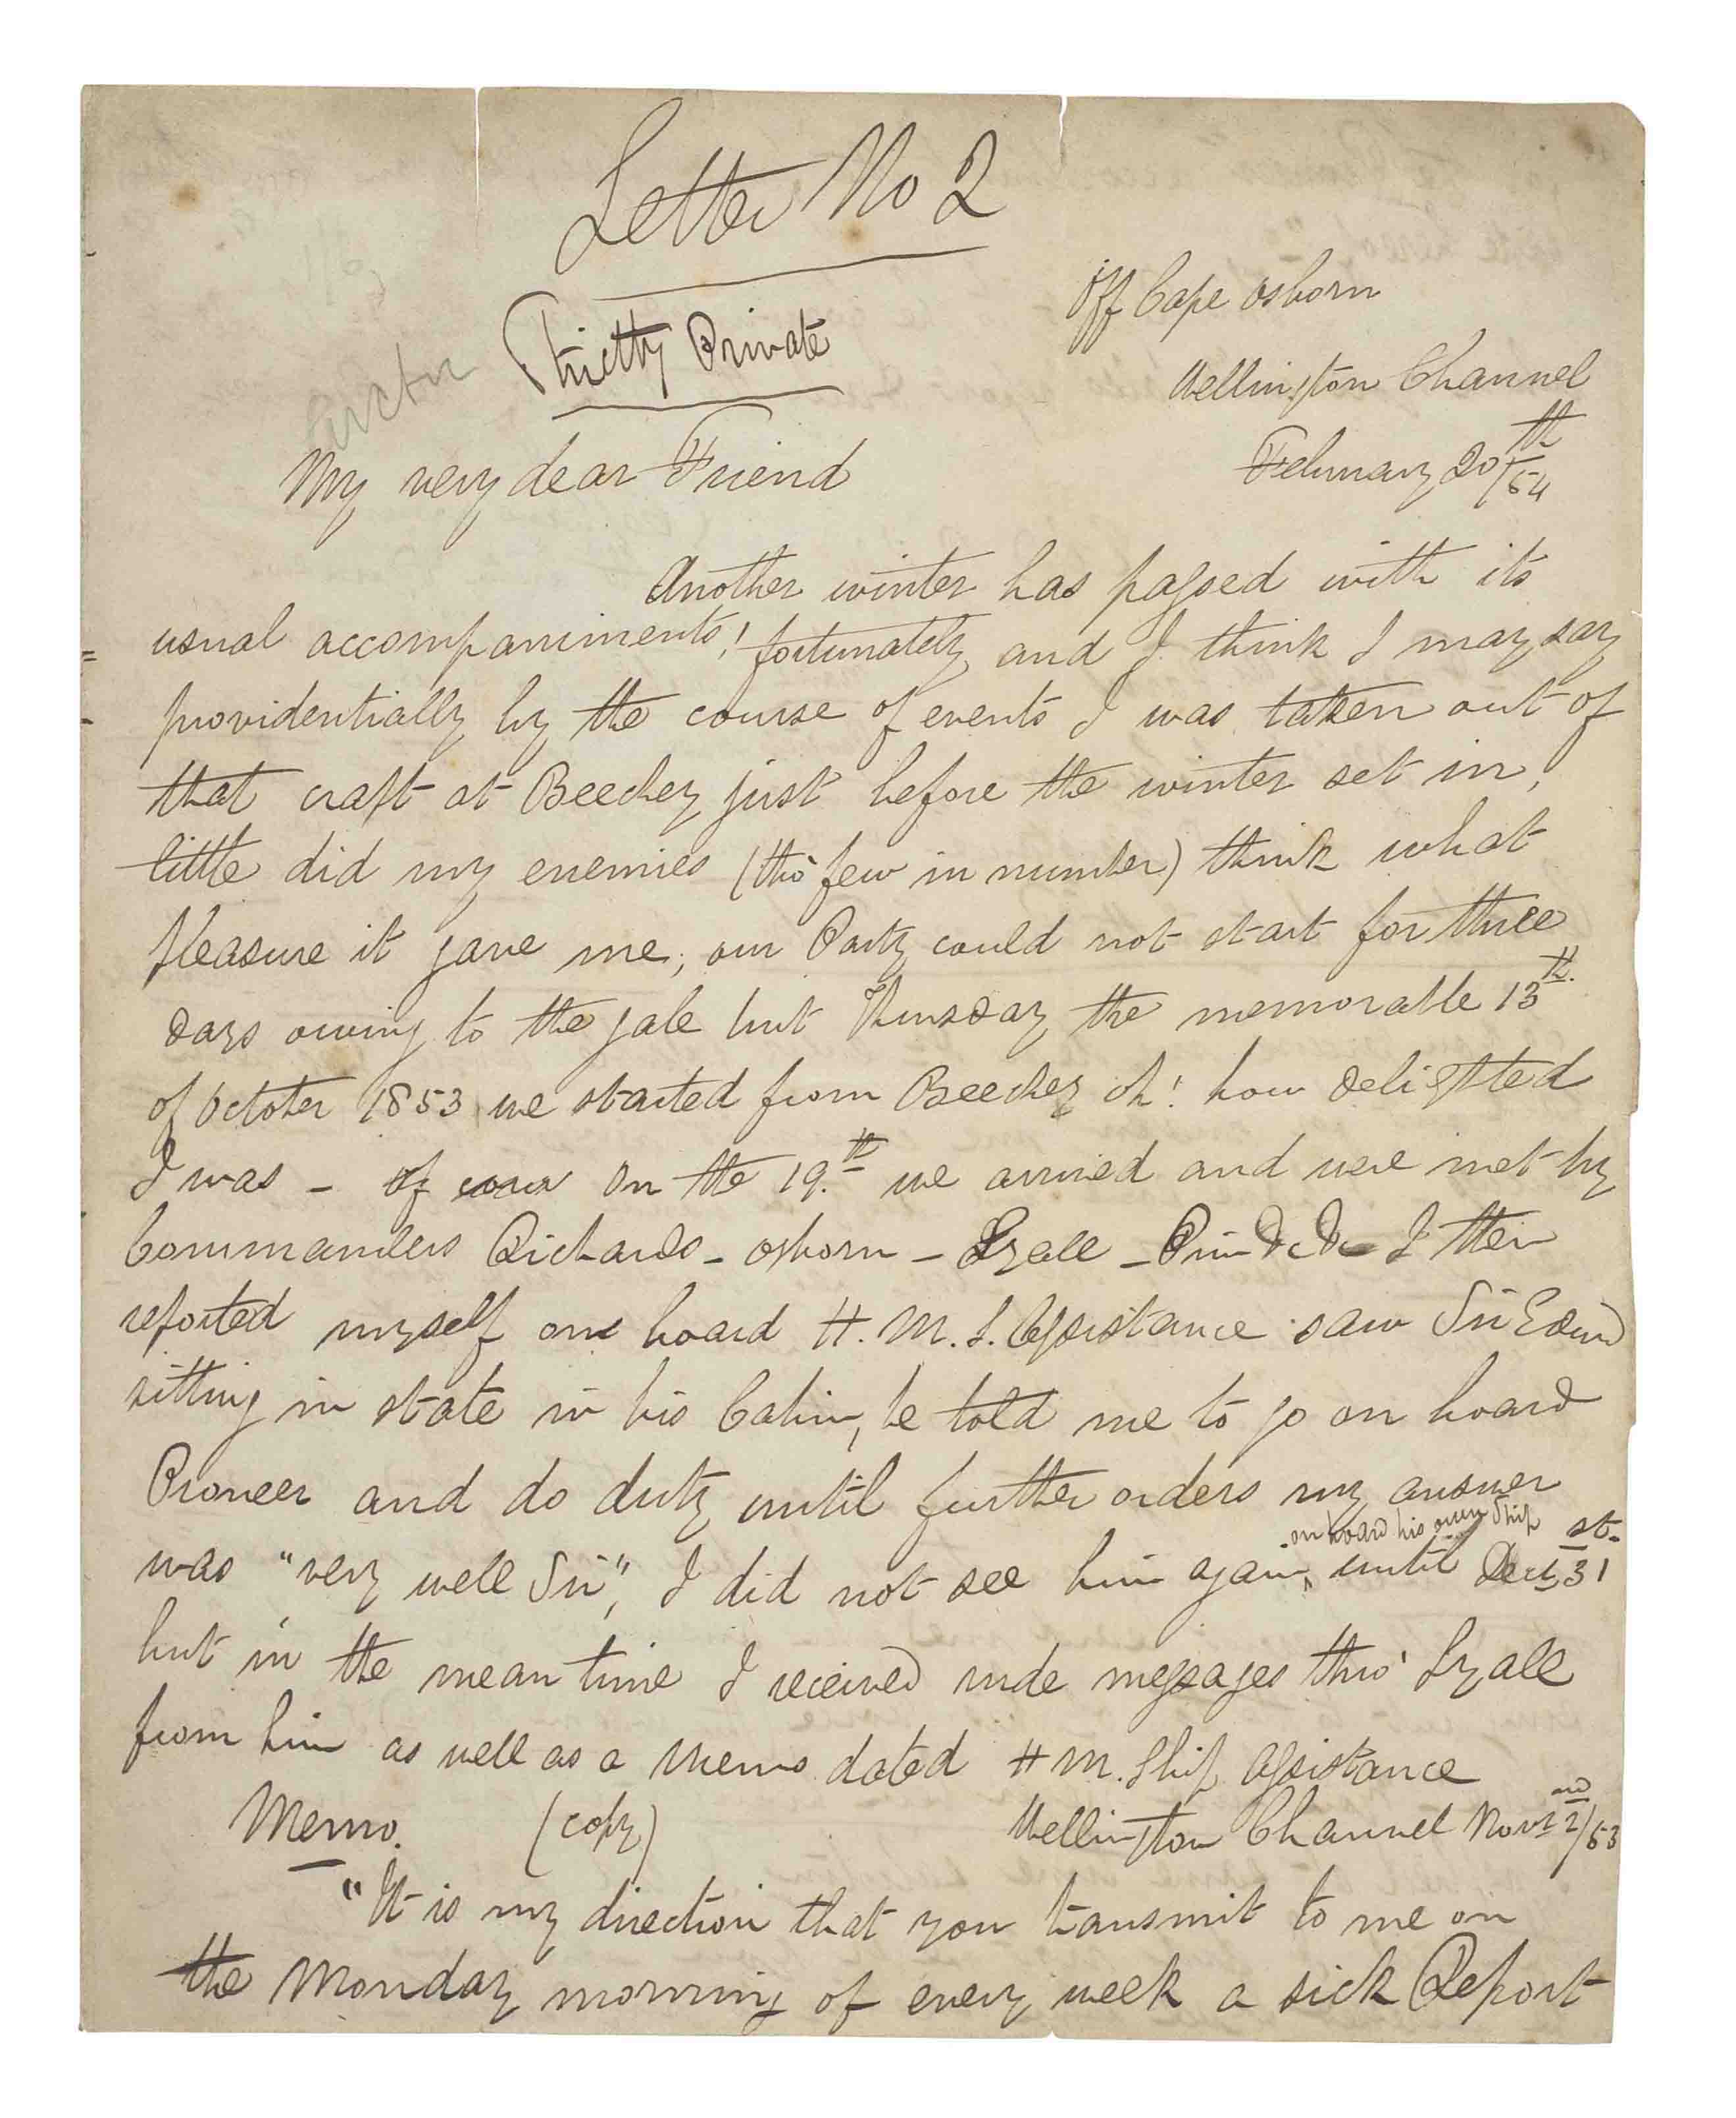 Letter No 2
Strictly Private
Off Cape Osborn
Wellington Channel
February 20th/54
Arctic
My very dear Friend
Another winter has passed with its
usual accompaniments! fortunately and I think I may say
providentially by the course of events I was taken out of
that craft at Beechey just before the winter set in,
little did my enemies (tho' few in number) think what
pleasure it gave me, our Party could not start for three
days owing to the gale but Thursday the memorable 13th.
of October 1853 we started from Beechey oh! how delighted
I was - of On the 19.th we arrived and were met by
Commanders Richards - Osborn - Lyall - Pim &c &c I then
reported myself on board H.M.S. Assistance saw Sir Edwd
sitting in state in his Cabin, he told me to go on board
Pioneer and do duty until further orders my answer
was "very well Sir", I did not see him again on board his own Ship until Decr 31st.
but in the mean time I received rude messages thro' Lyall
from him as well as a Memo dated H M. Ship Assistance
Memo. (copy) Wellington Channel Novr 2nd/53
"It is my direction that you transmit to me on
the Monday morning of every week a sick Report